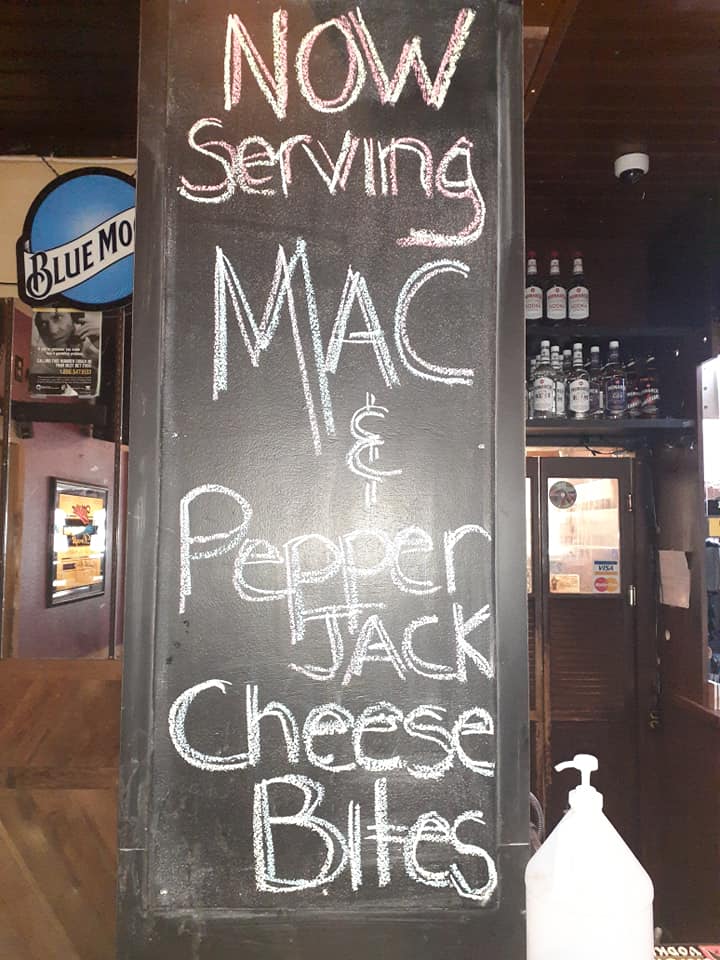 NOW
Serving
MAC
&
Pepper
JACK
Cheese
Bites
BLUE MO
VISA